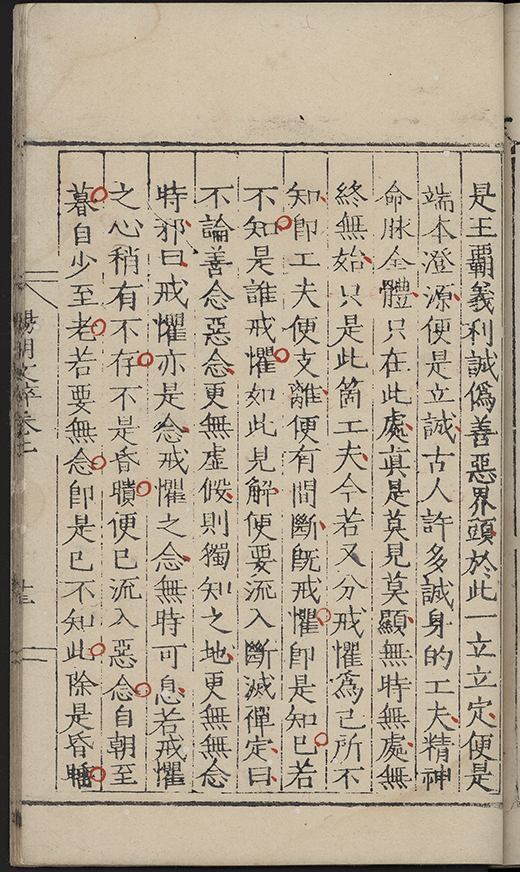 是王覇義利誠僞善惡界頭於此一立立定便是
端本澄源便是立誠古人許多誠身的工夫精神
命脉全體只在此處眞是莫見莫顯無時無處無
終無始只是此箇工夫今若又分戒懼爲己所不
知卽工夫便支離便有間斷旣戒懼卽是知己若
不知是誰戒懼如此見解便要流入斷滅禪定曰
不論善念惡念更無虛假則獨知之地更無無念
時邪曰戒懼亦是念戒懼之念無時可息若戒懼
之心稍有不存不是昏聵便已流入惡念自朝至
暮自少至老若要無念卽是已不知此除是昏睡
陽明文粹卷